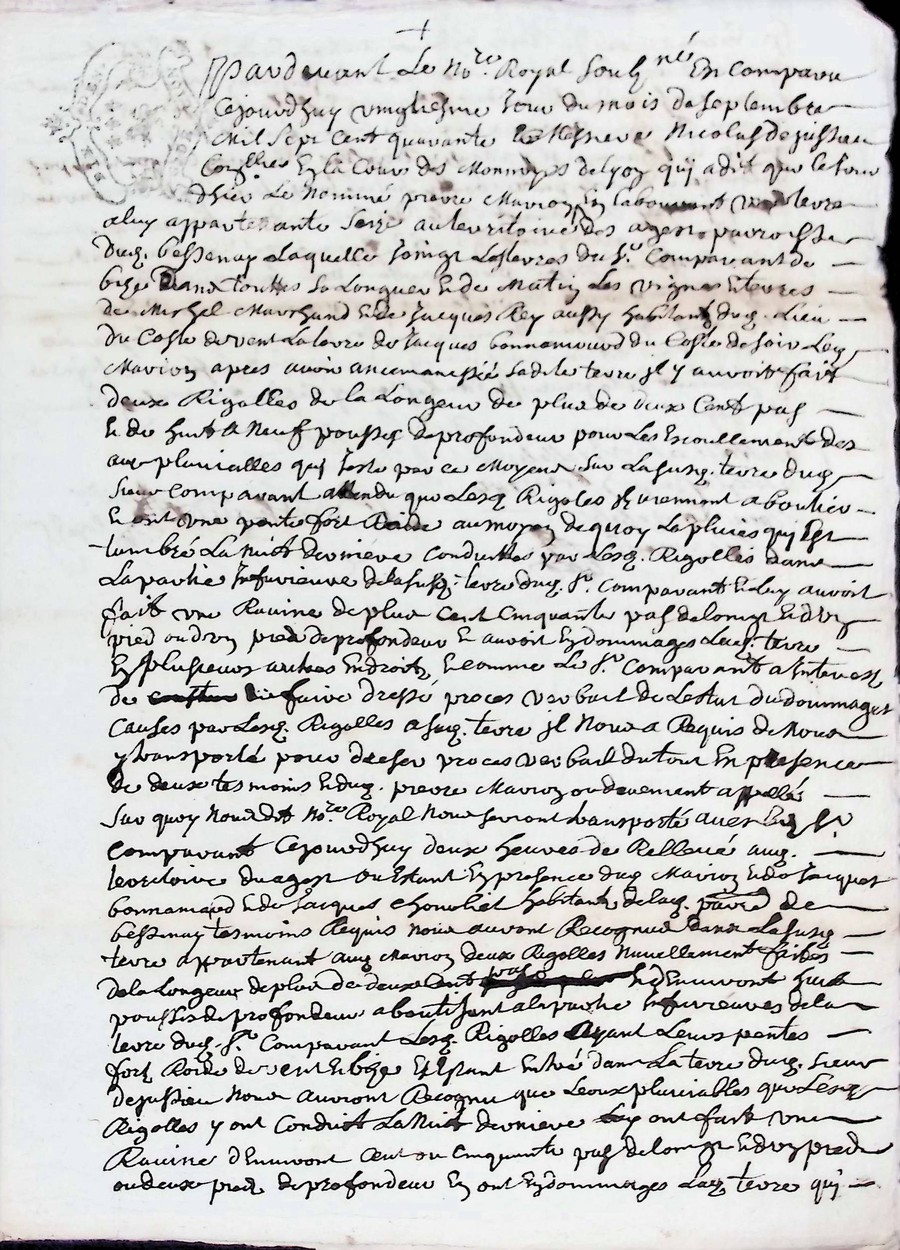 +
Pardevant Le No.re Royal soubz.né En comparu
Cejourdhuy vingtiesme Jour du mois de septembre
Mil Sept Cent quarante Messire Nicolas dejussieu
Con.er En la Cour des Monnoyes de Lyon qui a dit que le jour
dhier Le Nommé pierre Marion En labourant terre
a luy appartenante size au territoire des agest parroisse
dud. bessenay Laquelle joingt Les terres du Sr. Comparant de
bize Dans touttes sa Longueur Et de Matin Les vignes Et terres
de Michel Marchand Et de Jacques Rey aussy habitants dud. Lieu
du Costé de vent La terre de Jacques bonnamour du Costé de soir Led.
Marion apres avoir ancemancée sadite terre Jl y auroit fait
deux Rigolles de la Longeur de plus de deux Cent pas
Et de huit a Neuf pousses de profondeur pour Les Escoullements des
aux pluvialles qui par ce Moyen sur La susd. terre dud.
sieur Comparant attendu que Lesd. Rigoles y viennent aboutir
Et ont une pente fort Roide au moyen de quoy La pluies qui Est
tumbré La Nuit derniere Conduittes par Lesd. Rigolles dans
La partie Inferieure de la susd. terre dud. Sr. Comparant Et Luy auroit
fait une Ravine de plus Cent Cinquante pas de Longt Et d'un
pied ou d'un pied de profondeur Et auroit Endommagés Lad. terre
En plusieurs autres Endroits Et comme Le Sr. Comparant a Interest
de faire dressé proces verbail de Lestat du dommages
Causés par Lesd. Rigolles a sad. terre Jl Nous a Requis de Nous
y transporté pour dresser proces verbail du tout En presence
de deux tesmoins Et dud. pierre Marion ou deuement appellé
Sur quoy Nousdit No.re Royal Nous serions transporté avec Led. Sr.
Comparant Cejourdhuy deux heures de Rellevé aud.
territoire du agest ou Estant En presence dud. Marion Et de Jacques
bonnamour Et de Jacques habitants de lad. parr.e de
bessenay tesmoins Requis Nous aurons Recognue dans La susd.
terre appartenant aud. Marion deux Rigolles Nuvellement faites
de la Longeur de plus de deux Cent pas Et d'Environt huit
pousses de profondeur aboutissant a la partie Inferieures de la
terre dud. Sr. Comparant Lesd. Rigolles ayant Leurs pentes
fort Roide de vent En bize Et Estant Entré dans La terre dud. sieur
dejussieu Nous aurions Recognu que Leaux pluviables que Lesd.
Rigolles y ont Conduit La Nuit derniere y ont fait une
Ravine d'Environt Cent ou Cinquante pas de Longt Et d'un pied
ou deux pied de profondeur Et ont Endommages Lad. terre qui